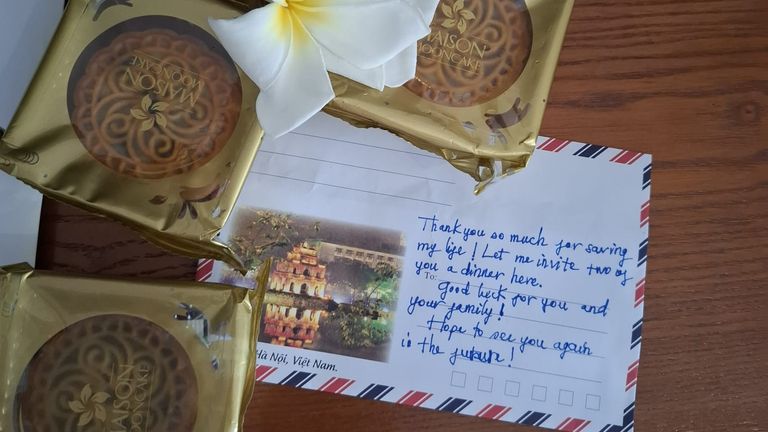 MAISON
MOONCAKE
MAISON
MOONCAKE
MAISON
Thank you so much for saving
my life! Let me invite two of
you a dinner here.
To:
Good luck for you and
your family!
Hope to see you again
in the future!
Hà Nội, Việt Nam.